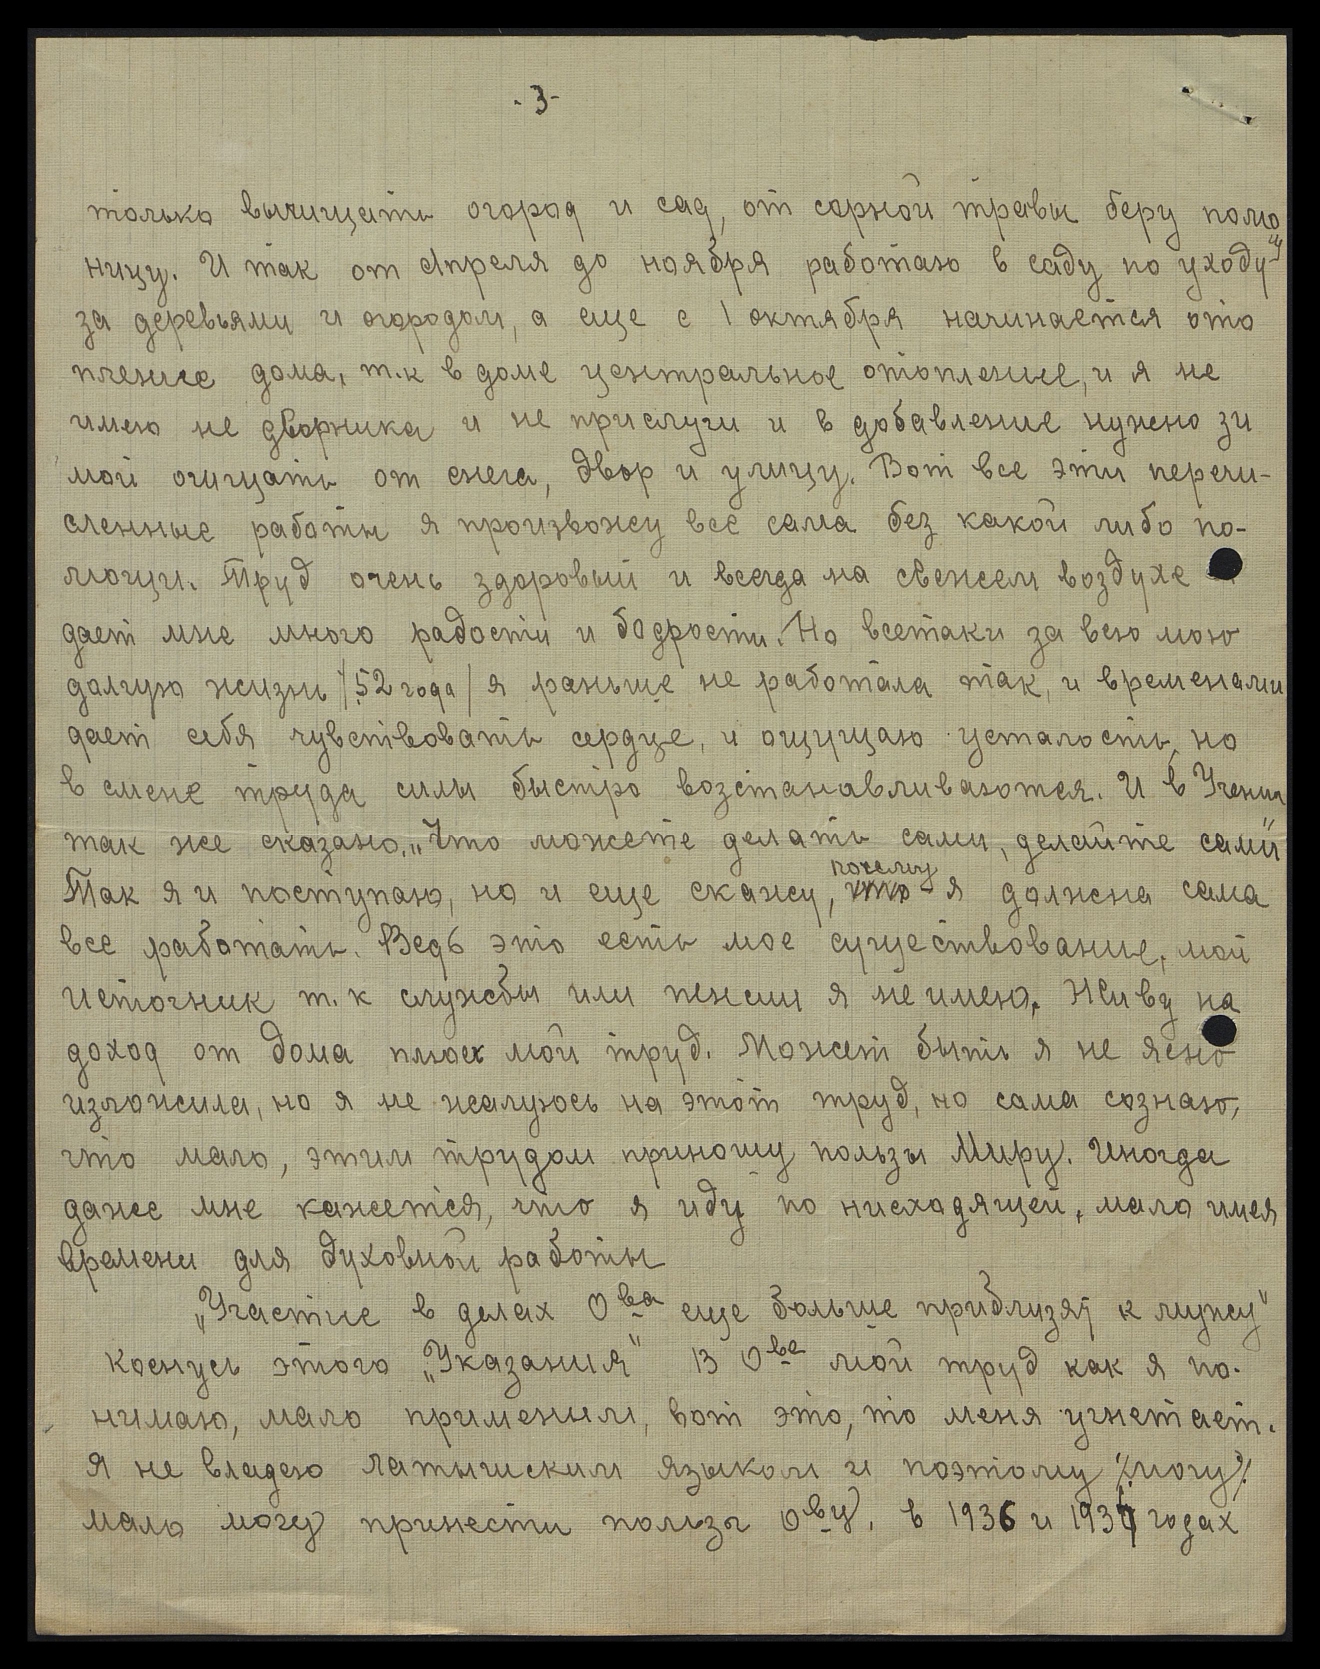 - 3 -
только вычищать огород и сад, от сорной травы беру помощ
ницу. И так от Апреля до ноября работаю в саду по уходу
за деревьями и огородом, а еще с 1 октября начинается ото
пление дома, т.к в доме центральное отопление, и я не
имею не дворника и не прислуги и в добавление нужно зи
мой очищать от снега, двор и улицу. Вот все эти перечи-
сленные работы я произвожу все сама без какой либо по-
мощи. Труд очень здоровый и всегда на свежем воздухе
дает мне много радости и бодрости. Но всетаки за всю мою
долгую жизнь /52 года/ я раньше не работала так, и временами
дает себя чувствовать сердце, и ощущаю усталость, но
в смене труда силы быстро возстанавливаются. И в Учении
так же сказано, „Что можете делать сами, делайте сами"
Так я и поступаю, но и еще скажу, почему я должна сама
все работать. Ведь это есть мое существование, мой
источник т.к службы или пенсии я не имею. Живу на
доход от дома плюс мой труд. Может быть я не ясно
изложила, но я не жалуюсь на этот труд, но сама сознаю,
что мало, этим трудом приношу пользы Миру. Иногда
даже мне кажется, что я иду по нисходящей, мало имея
времени для духовной работы
„Участие в делах О-ва еще больше приблизят к мужу"
Коснусь этого „Указания" В О-ве мой труд как я по-
нимаю, мало применим, вот это, то меня угнетает.
Я не владею латышским языком и поэтому /.могу/.
мало могу принести пользы О-ву. в 1936 и 1937 годах